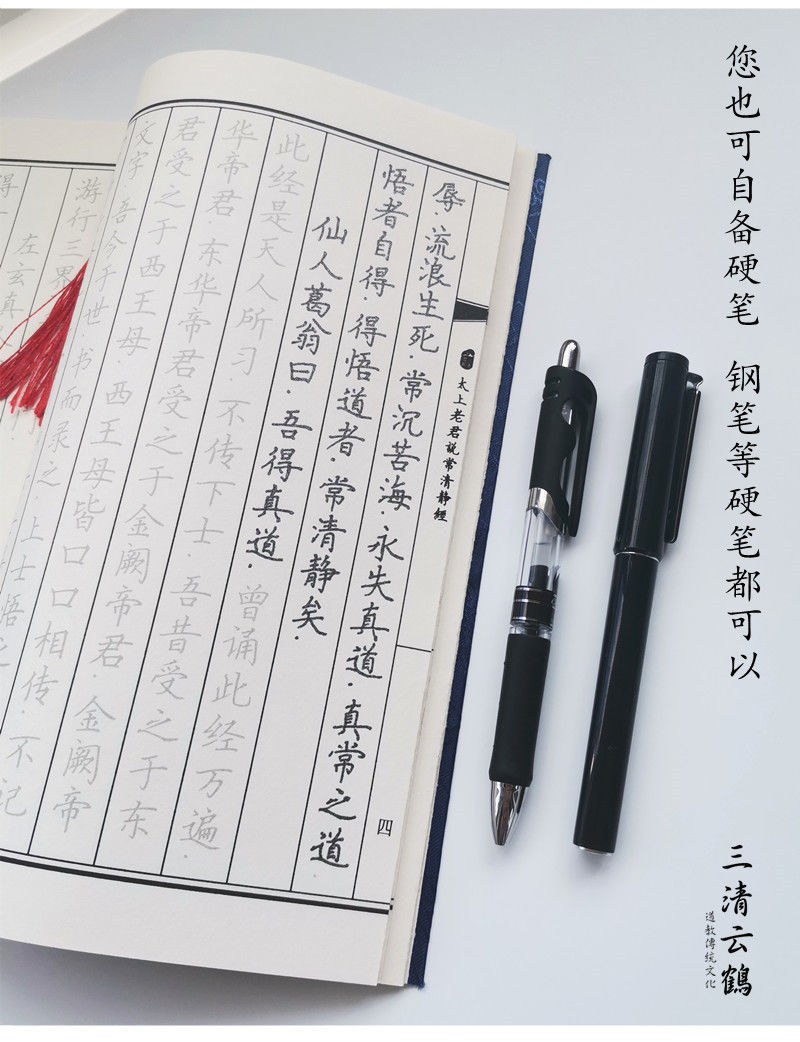 您也可自备硬笔 钢笔等硬笔都可以
三清云鹤
道教傳統文化
太上老君説常清静經
四
辱.流浪生死.常沉苦海.永失真道.真常之道
悟者自得.得悟道者.常清静矣.
仙人葛翁曰.吾得真道.曾诵此经万遍.
此经是天人所习.不传下士.吾昔受之于东
华帝君.东华帝君受之于金阙帝君.金阙帝
君受之于西王母.西王母皆口口相传.不记
文字.吾今于世.书而录之.上士悟之
游行三界
左玄真
得